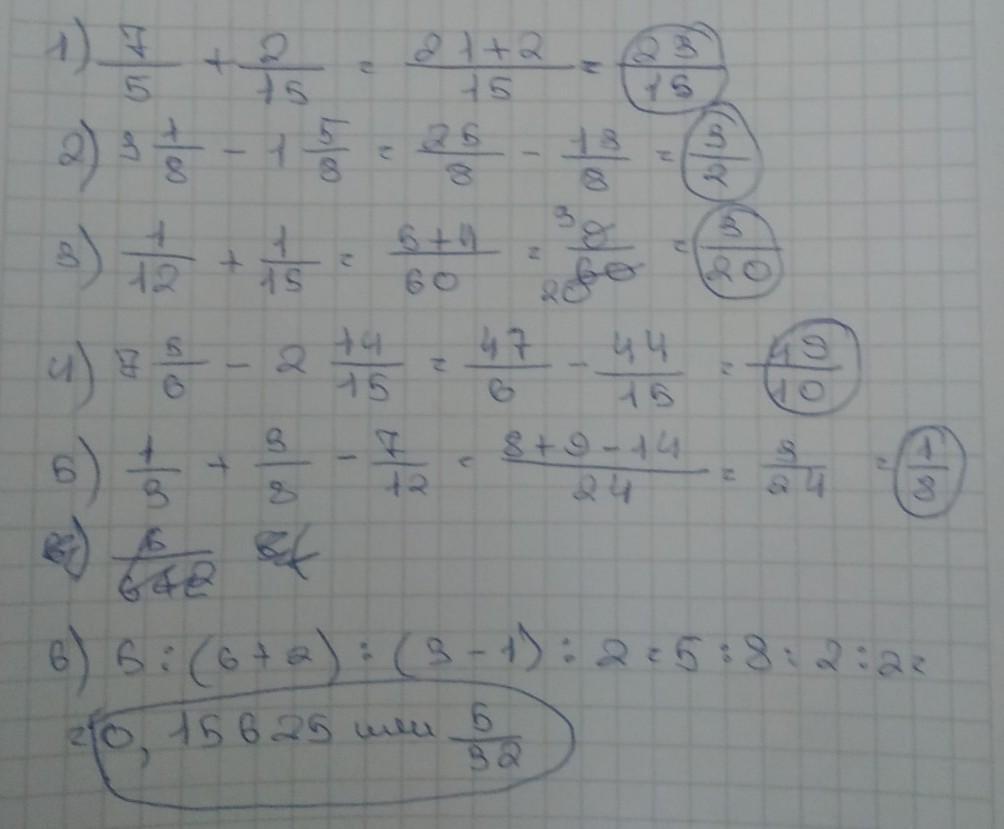 1) 7/5 + 2/15 = 21+2/15 = 23/15
2) 3 1/8 - 1 5/8 = 25/8 - 13/8 = 3/2
3) 1/12 + 1/15 = 5+4/60 = 3 9/60 20 = 3/20
4) 7 5/6 - 2 14/15 = 47/6 - 44/15 = 49/10
5) 1/3 + 3/8 - 7/12 = 8+9-14/24 = 3/24 = 1/8
6) 5 : (6+2) : (3-1) : 2 = 5 : 8 : 2 : 2 =
= 0,15625 или 5/32